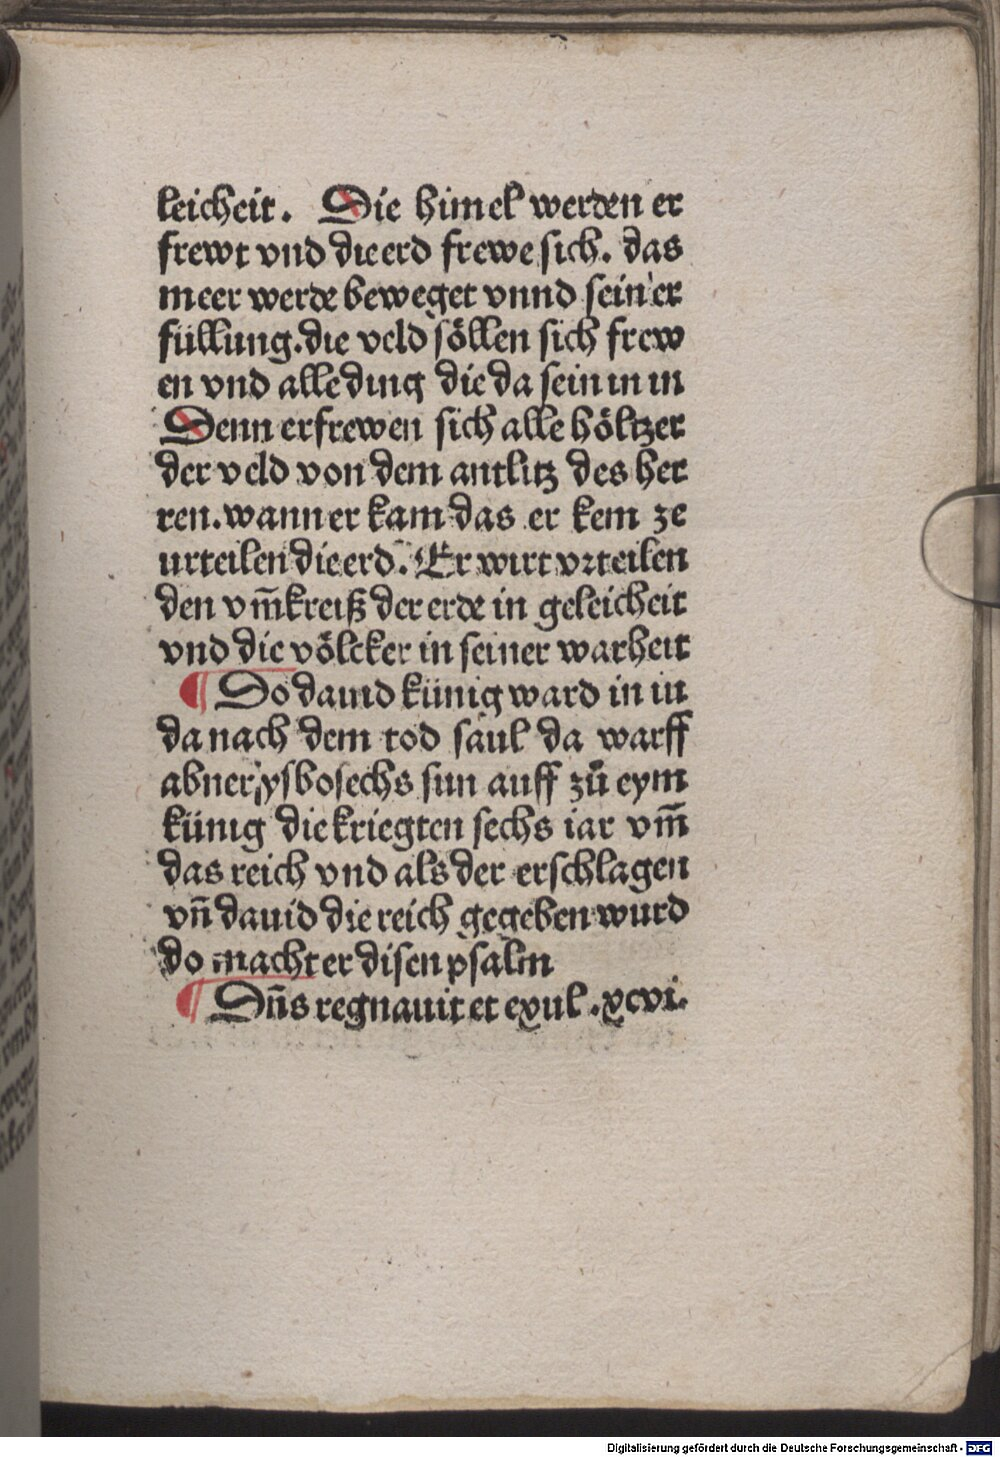 leicheit. Die himel werden er
frewt vnd die erd frewe sich. das
meer werde beweget vnnd sein er
füllung. die veld söllen sich frew
en vnd alle ding die da sein in in
Denn erfrewen sich alle höltzer
der veld von dem antlitz des her
ren. wann er kam das er kem ze
urteilen die erd. Er wirt vrteilen
den vm̄kreiß der erde in geleicheit
vnd die völcker in seiner warheit
¶ Do dauid künig ward in iu
da nach dem tod saul da warff
abner ysbosechs sun auff zů eym
künig die kriegten sechs iar vm̄
das reich vnd als der erschlagen
vn̄ dauid die reich gegeben wurd
do macht er disen psalm
¶ Dn̄s regnauit et exul. xcvi.
Digitalisierung gefördert durch die Deutsche Forschungsgemeinschaft - DFG